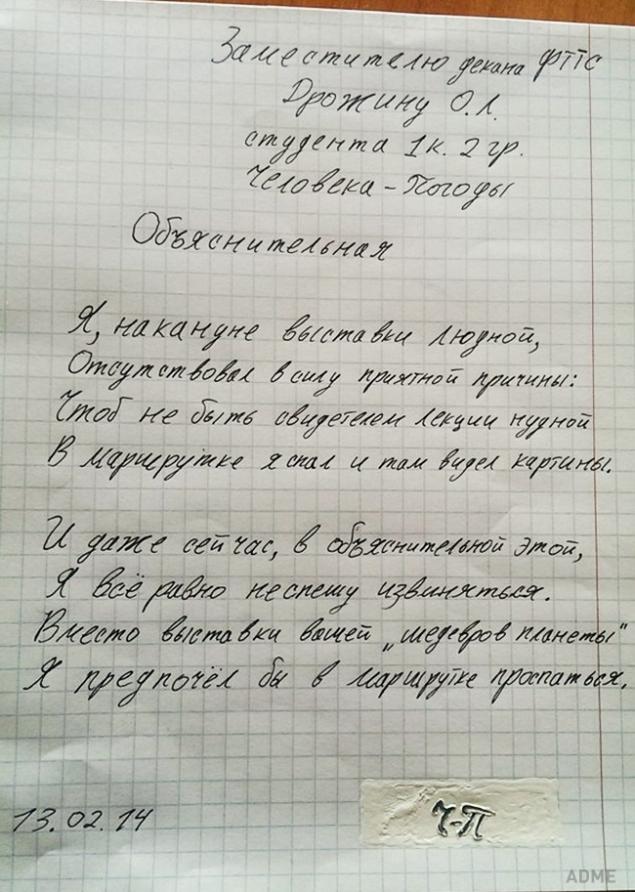 Заместителю декана ФТПС
Дрожину О.Л.
студента 1к. 2 гр.
Человека-Погоды
Объяснительная
Я, накануне выставки людной,
Отсутствовал в силу приятной причины:
Чтоб не быть свидетелем лекции нудной
В маршрутке я спал и там видел картины.
И даже сейчас, в объяснительной этой,
Я всё равно неспешу извиняться.
Вместо выставки вашей „шедевров планеты"
Я предпочёл бы в маршрутке проспаться.
13.02.14
Ч-П
ADME